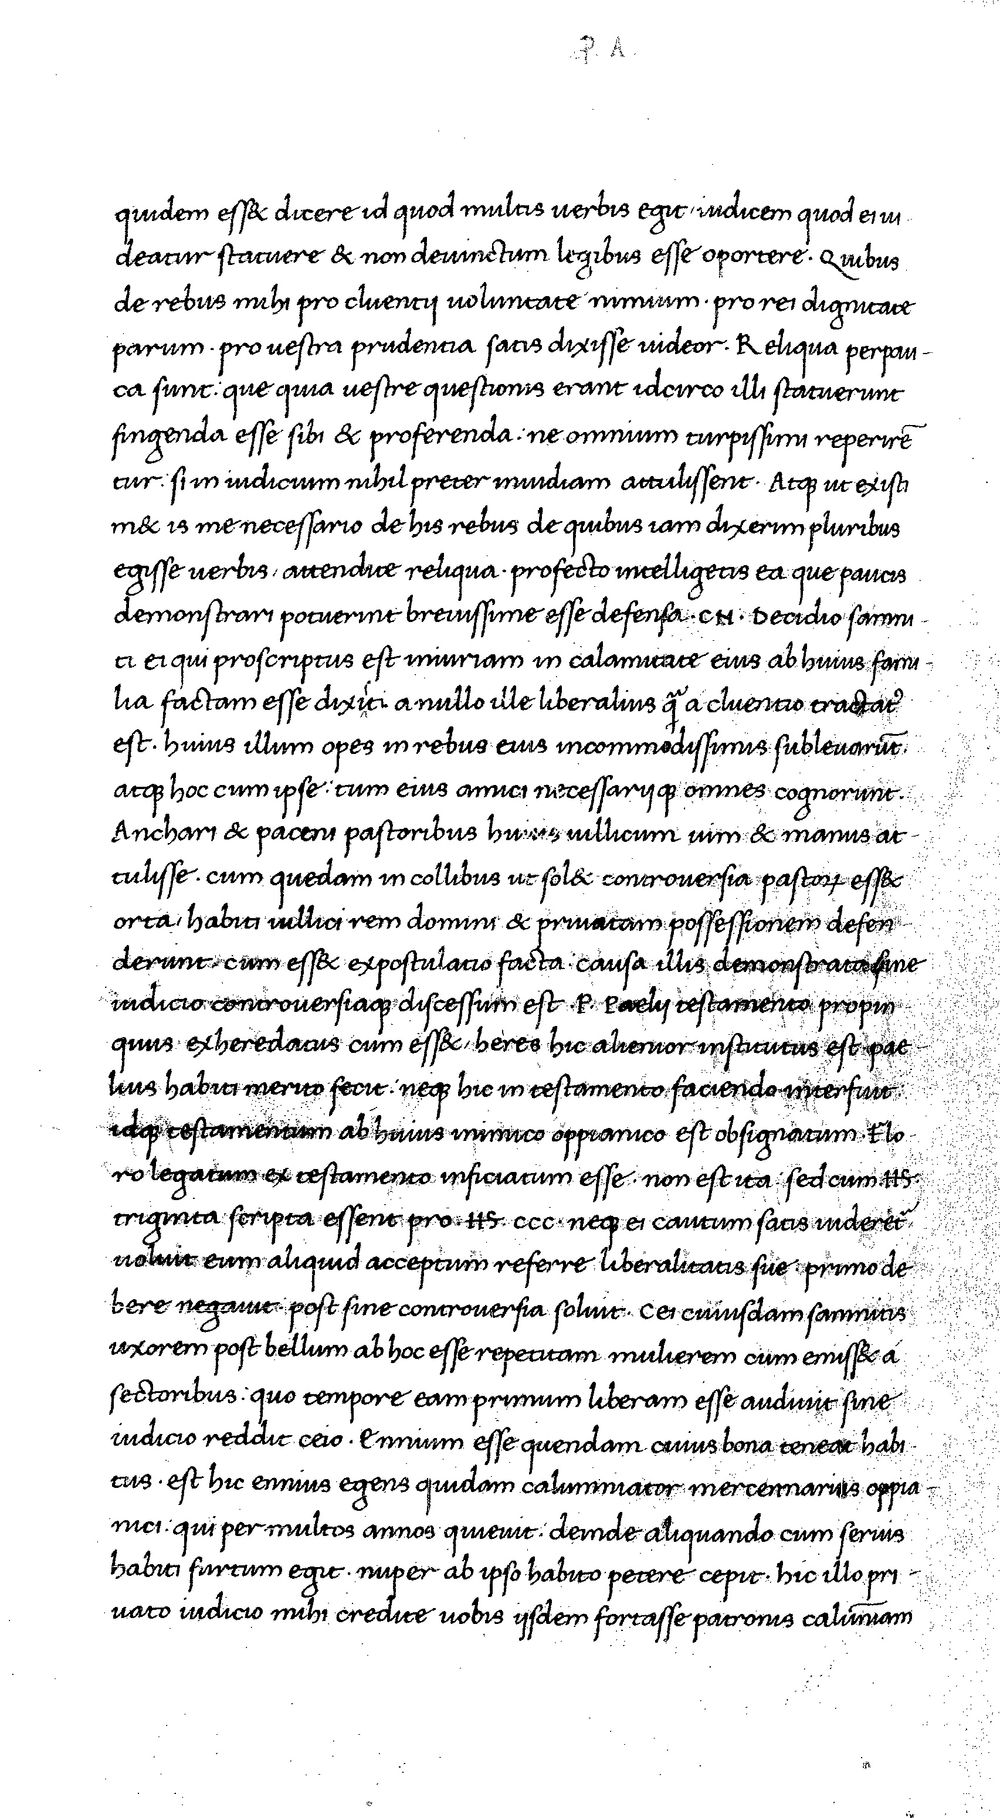 P A
quidem ess& dicere id quod multis uerbis egit, iudicem quod ei ui
deatur statuere & non deuinctum legibus esse oportere. Quibus
de rebus mihi pro cluentij uoluntate nimium. pro rei dignitate
parum. pro uestra prudentia satis dixisse uideor. Reliqua perpau-
ca sunt: que quia uestre questionis erant idcirco illi statuerunt
fingenda esse sibi & proferenda: ne omnium turpissimi reperirē
tur: si in iudicium nihil preter inuidiam attulissent. Atqꝫ ut existi
m& is me necessario de his rebus de quibus iam dixerim pluribus
egisse uerbis, attendite reliqua. profecto intelligetis ea que paucis
demonstrari potuerint breuissime esse defensa. CN. Decidio samni-
ti ei qui proscriptus est iniuriam in calamitate eius ab huius fami-
lia factam esse dixiti. a nullo ille liberalius qᷓ a cluentio tractat᷒
est. huius illum opes in rebus eius incommodissimis subleuarūt.
atqꝫ hoc cum ipse: tum eius amici necessarijqꝫ omnes cognorunt.
Anchari & paceni pastoribus huius uillicum uim & manus at-
tulisse. cum quedam in collibus ut sol& controuersia pastoꝝ ess&
orta, habiti uillici rem domini & priuatam possessionem defen-
derunt. cum ess& expostulatio facta. causa illis demonstrata sine
iudicio controuersiaqꝫ discessum est. P. Paelij testamento propin-
quus exheredatus cum ess&, heres hic alienior institutus est. pae-
lius habiti merito fecit: neqꝫ hic in testamento faciendo interfuit.
idqꝫ testamentum ab huius inimico oppianico est obsignatum. Flo-
ro legatum ex testamento inficiatum esse. non est ita: sed cum HS.
triginta scripta essent pro HS. ccc. neqꝫ ei cautum satis uideret᷒
uoluit eum aliquid acceptum referre liberalitatis sue: primo de
bere negauit. post sine controuersia soluit. Cei cuiusdam samnitis
uxorem post bellum ab hoc esse repetitam mulierem cum emiss& a
sectoribus: quo tempore eam primum liberam esse audiuit sine
iudicio reddit ceio. Ennium esse quendam cuius bona teneat habi-
tus. est hic ennius egens quidam calumniator mercennarius oppia-
nici: qui per multos annos quieuit: deinde aliquando cum seruis
habiti furtum egit. nuper ab ipso habito petere cepit. hic illo pri-
uato iudicio mihi credite uobis ijsdem fortasse patronis calūniam